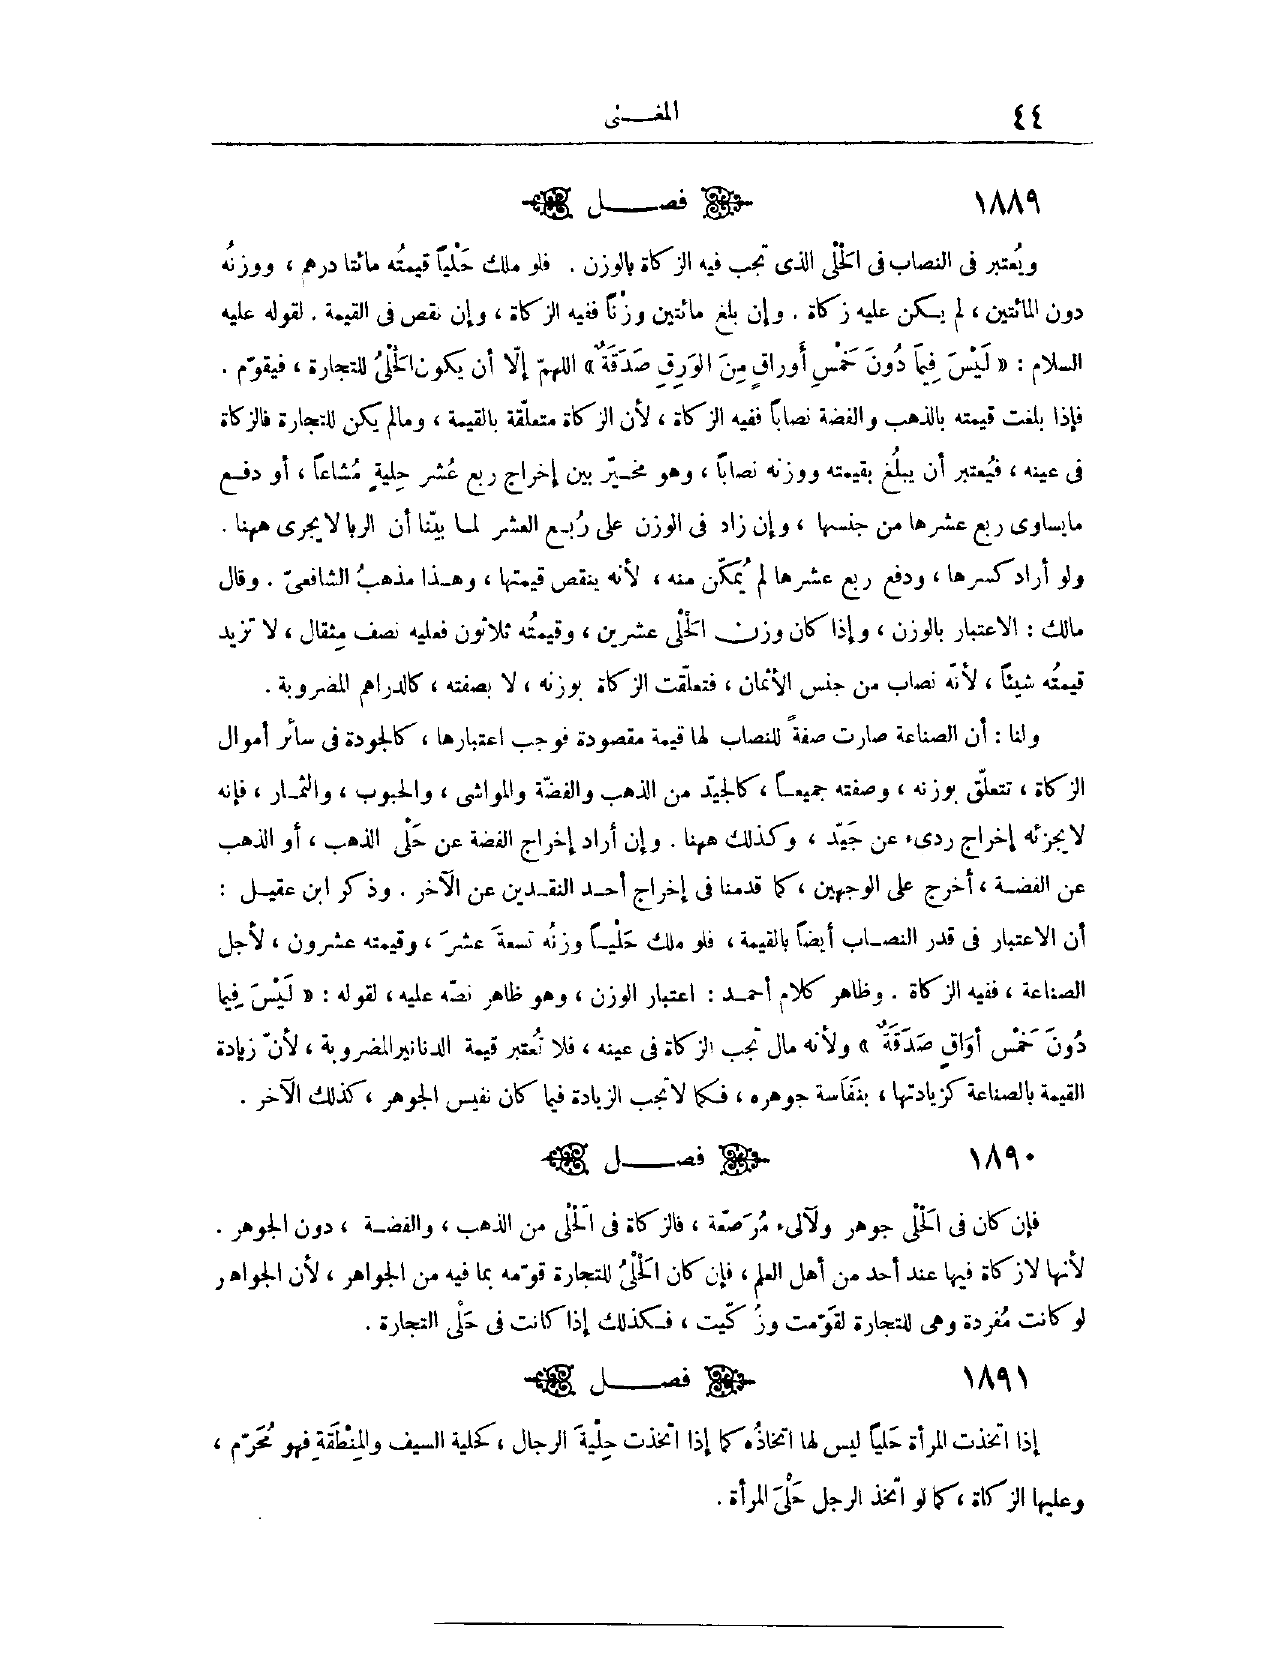 ٤٤ المغـــنى
١٨٨٩ فصــــل
ويُعتبر فى النصاب فى الحَلْى الذى تجب فيه الزكاة بالوزن . فلو ملك حَلْياً قيمتُه مائتا درهم ، ووزنُه
دون المائتين ، لم يكن عليه زكاة . وإن بلغ مائتين وزْناً ففيه الزكاة ، وإن نقص فى القيمة . لقوله عليه
السلام : « لَيْسَ فِيمَا دُونَ خَمْسِ أَوراقٍ مِنَ الوَرِقِ صَدَقَةٌ » اللهمّ إلّا أن يكون الحَلْىُ للتجارة ، فيقوّم .
فإذا بلغت قيمته بالذهب والفضة نصاباً ففيه الزكاة ، لأن الزكاة متعلّقة بالقيمة ، ومالم يكن للتجارة فالزكاة
فى عينه ، فيُعتبر أن يبلُغ بقيمته ووزنه نصاباً ، وهو مخيّر بين إخراج ربع عُشر حِليةٍ مُشاعاً ، أو دفع
مايساوى ربع عشرها من جنسها ، وإن زاد فى الوزن على رُبع العشر لما بيّنا أن الربا لايجرى ههنا .
ولو أراد كسرها ، ودفع ربع عشرها لم يُمكّن منه ، لأنه ينقص قيمتها ، وهـذا مذهبُ الشافعىّ . وقال
مالك : الاعتبار بالوزن ، وإذا كان وزن الحَلْى عشرين ، وقيمتُه ثلاثون فعليه نصف مِثقال ، لا تزيد
قيمتُه شيئاً ، لأنّه نصاب من جنس الأثمان ، فتعلّقت الزكاة بوزنه ، لا بصفته ، كالدراهم المضروبة .
ولنا : أن الصناعة صارت صفةً للنصاب لها قيمة مقصودة فوجب اعتبارها ، كالجودة فى سائر أموال
الزكاة ، تتعلّق بوزنه ، وصفته جميعـاً ، كالجيّد من الذهب والفضّة والمواشى ، والحبوب ، والثمـار ، فإنه
لايجزئه إخراج ردىء عن جَيّد ، وكذلك ههنا . وإن أراد إخراج الفضة عن حَلْى الذهب ، أو الذهب
عن الفضـة ، أخرج على الوجهين ، كما قدمنا فى إخراج أحـد النقـدين عن الآخر . وذكر ابن عقيـل :
أن الاعتبار فى قدر النصـاب أيضاً بالقيمة ، فلو ملك حَلْيـاً وزنُه تسعةَ عشرَ ، وقيمته عشرون ، لأجل
الصناعة ، ففيه الزكاة . وظاهر كلام أحمـد : اعتبار الوزن ، وهو ظاهر نصّه عليه ، لقوله : « لَيْسَ فِيمَا
دُونَ خَمْس أَوَاقٍ صَدَقَةٌ » ولأنه مال تجب الزكاة فى عينه ، فلا تُعتبر قيمة الدنانير المضروبة ، لأنّ زيادة
القيمة بالصناعة كزيادتها ، بنَفَاسة جوهره ، فـكما لاتجب الزيادة فيما كان نفيس الجوهر ، كذلك الآخر .
١٨٩٠ فصــــل
فإن كان فى الحَلْى جوهر ولآلىء مُرَصّعة ، فالزكاة فى الحَلْى من الذهب ، والفضـة ، دون الجوهر .
لأنها لازكاة فيها عند أحد من أهل العلم ، فإن كان الحَلْىُ للتجارة قوّمه بما فيه من الجواهر ، لأن الجواهر
لو كانت مُفردة وهى للتجارة لقَوّمت وزُكّيت ، فـكذلك إذا كانت فى حَلْى التجارة .
١٨٩١ فصــــل
إذا اتّخذت المرأة حَلياً ليس لها اتخاذُه كما إذا اتّخذت حِلْيةَ الرجال ، كحلية السيف والمِنْطَقَةِ فهو مُحَرّم ،
وعليها الزكاة ، كما لو اتّخذ الرجل حَلْىَ المرأة .